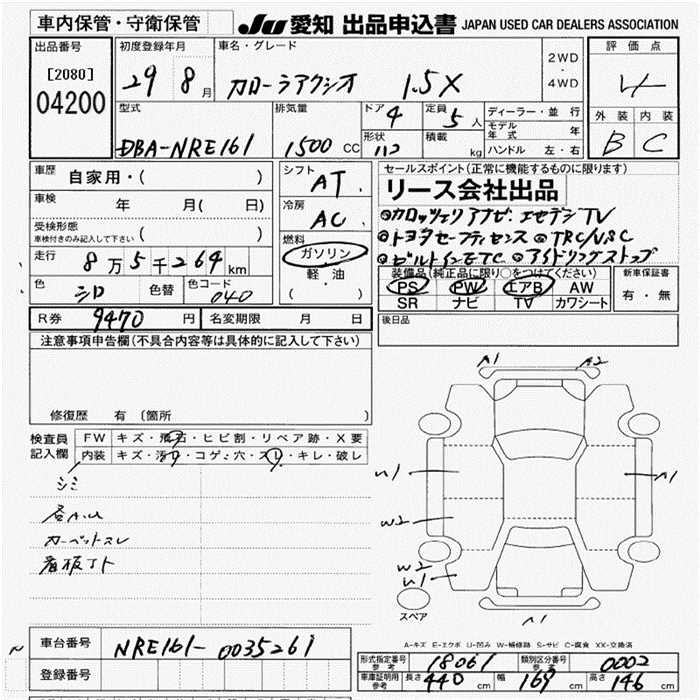 車内保管・守衛保管
JU 愛知 出品申込書 JAPAN USED CAR DEALERS ASSOCIATION
出品番号
[2080]
04200
初度登録年月
29 8月
車名・グレード
カローラアクシオ 1.5X
2WD
・
4WD
評価点
4
外装 内装
B C
型式
DBA-NRE161
排気量
1500 CC
ドア 4
形状
定員 5 人
積載 kg
ディーラー・並行
モデル年式 年
ハンドル 左・右
車歴 自家用・( )
車検 年 月( 日)
受検形態
車検付きのみ記入して下さい ( )
走行 8万5千269km
色 シロ 色替 色コード 040
シフト AT
冷房 AC
燃料
ガソリン
軽・油
( )
セールスポイント(正常に機能するものに限ります)
リース会社出品
◎カロッツェリアナビ・エセデジTV
◎トヨタセーフティセンス ◎TRC/VSC
◎ビルトインETC ◎アイドリングストップ
装備品(純正品に限り○をつけてください)
PS PW エアB AW
SR ナビ TV カワシート
新車保証書
有・無
R券 9470 円 名変期限 月 日
後日品
注意事項申告欄(不具合内容等は具体的に記入して下さい)
修復歴 有 (箇所 )
検査員記入欄
FW キズ・飛石・ヒビ割・リペア跡・X要
内装 キズ・汚れ・コゲ・穴・スレ・キレ・破レ
シミ
カーペットスレ
A1 A2
U1 A1
W2
W2
U1
A1
スペア
A-キズ E-エクボ U-凹み W-補修跡 S-サビ C-腐食 XX-交換済
車台番号 NRE161-0035261
登録番号
形式指定番号 参考 18061 類別区分番号 参考 0002
車庫証明用 参考 長さ 440 cm 幅 169 cm 高さ 146 cm